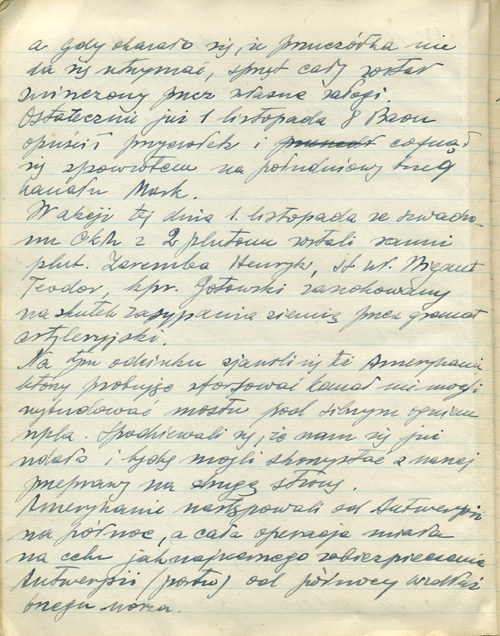 a gdy okazało się, iż przyczółka nie
da się utrzymać, sprzęt cały został
zniszczony przez własne załogi.
Ostatecznie już 1 listopada 8 Baon
opuścił przyczółek i cofnął
się spowrotem na południowy brzeg
kanału Mark.
W akcji tej dnia 1. listopada ze szwadro-
nu z 2 plutonu zostali ranni
plut. Zaremba Henryk, st. uł.
Teodor, kpr. Gotowski zachorowany
na skutek zasypania ziemią przez granat
artyleryjski.
Na tym odcinku zjawili się też Amerykanie
którzy próbując sforsować kanał nie mogli
wybudować mostu pod silnym ogniem
npla. Spodziewali się, że nam się już
udało i będą mogli skorzystać z naszej
przeprawy na drugą stronę.
Amerykanie następowali od Antwerpii
na północ, a cała operacja miała
na celu jaknajszersze zabezpieczenie
Antwerpii (portu) od północy wzdłuż
brzegu morza.